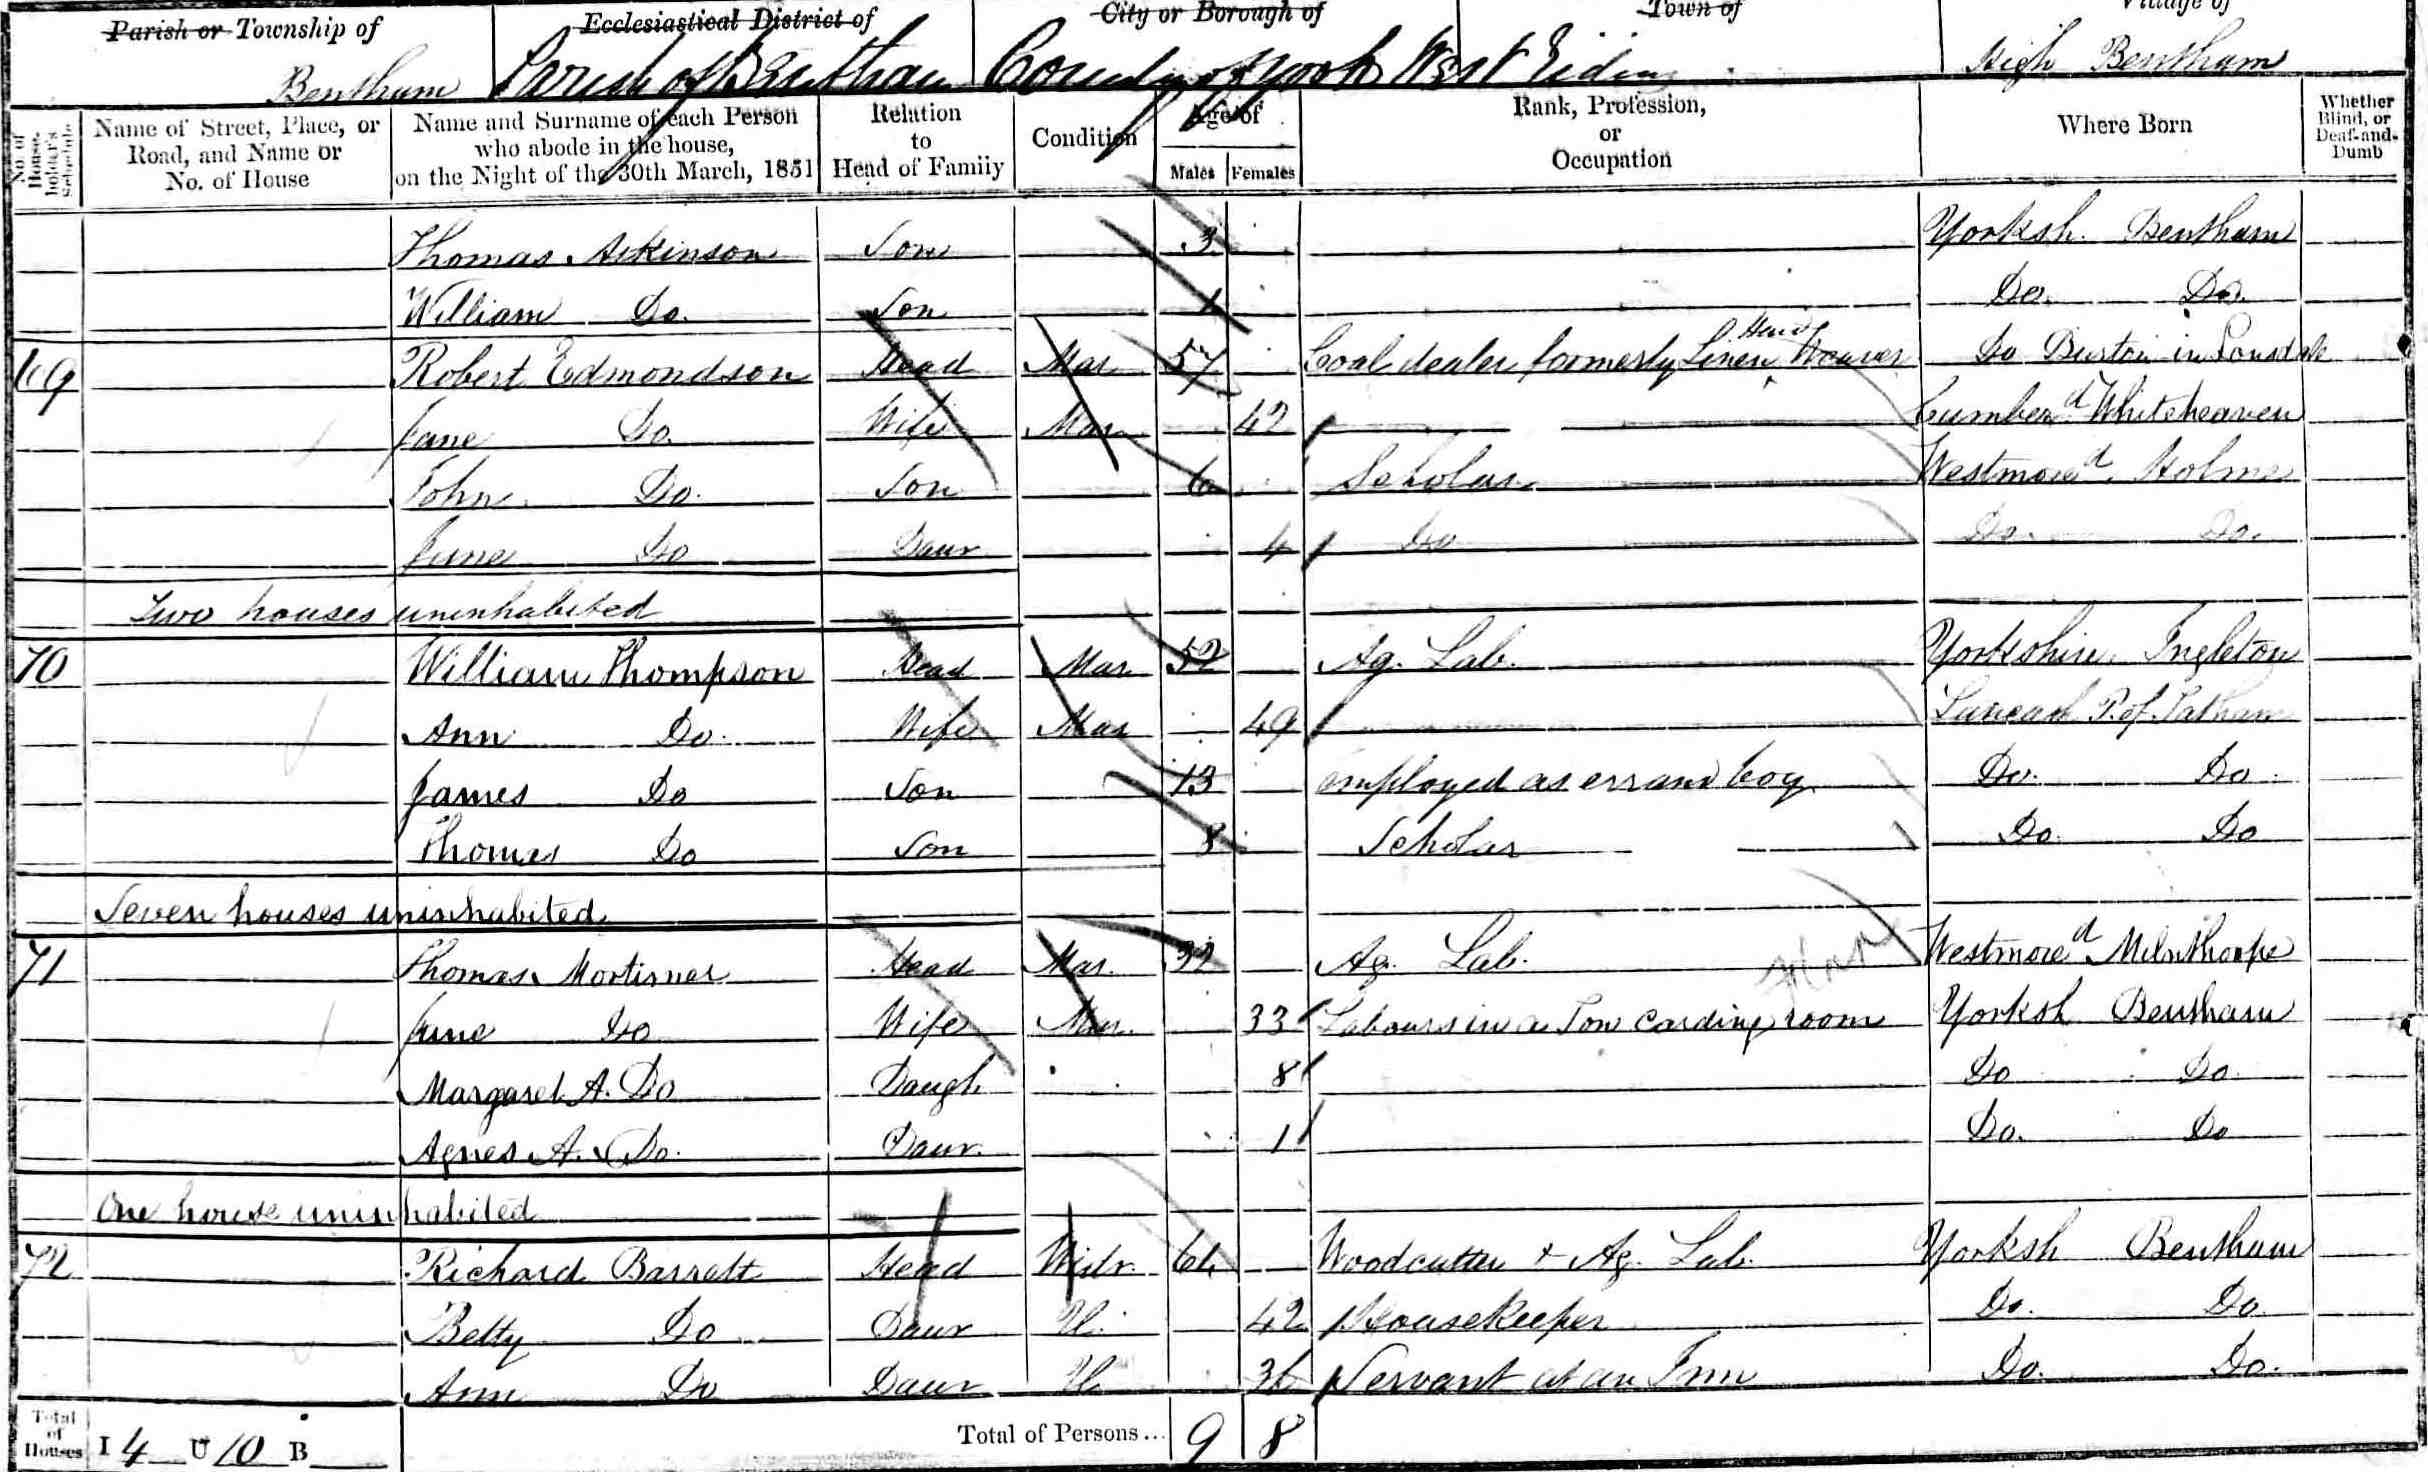 Parish or Township of Ecclesiastical District of City or Borough of Town of Village of
Bentham Parish of Bentham County of York West Riding High Bentham
No. of House-holder's Schedule
Name of Street, Place, or Road, and Name or No. of House
Name and Surname of each Person who abode in the house, on the Night of the 30th March, 1851
Relation to Head of Family
Condition
Age of
Males Females
Rank, Profession, or Occupation
Where Born
Whether Blind, or Deaf-and-Dumb
Thomas Atkinson Son 3 Yorksh. Bentham
William Do. Son 1 Do. Do.
69 Robert Edmondson Head Mar 57 Coal dealer formerly Linen Hand Weaver Do Burton in Lonsdale
Jane Do. Wife Mar 42 Cumberd Whitehaven
John Do. Son 6 Scholar Westmored Holme
Jane Do Daur 4 Do Do. Do.
Two houses uninhabited
70 William Thompson Head Mar 52 Ag. Lab. Yorkshire Ingleton
Ann Do. Wife Mar 49 Lancash P. of Tatham
James Do Son 13 employed as errand boy Do. Do.
Thomas Do Son 8 Scholar Do. Do
Seven houses uninhabited
71 Thomas Mortimer Head Mar. 32 Ag. Lab. Westmored Milnthorpe
Jane Do Wife Mar. 33 Labours in a Tow carding room Yorksh Bentham
Flax
Margaret A. Do Daugh 8 Do Do.
Agnes A. Do. Daur. 1 Do. Do
One house uninhabited
72 Richard Barratt Head Widr. 64 Woodcutter + Ag. Lab. Yorksh Bentham
Betty Do Daur U. 42 Housekeeper Do. Do.
Ann Do Daur U 36 Servant at an Inn Do. Do.
Total of Houses I 4 U 10 B Total of Persons... 9 8